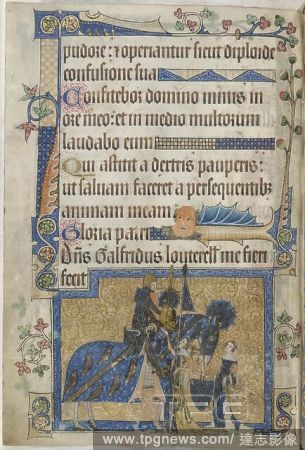 pudore: ⁊ operiantur sicut diploide
confusione sua
Confitebor domino nimis in
ore meo: et in medio multorum
laudabo eum
Qui astitit a dextris pauperis:
ut saluam faceret a persequentibꝫ
animam meam
Gloria patri
Dñs Galfridus louterell me fieri
fecit
TPG
www.tpgnews.com / 達志影像